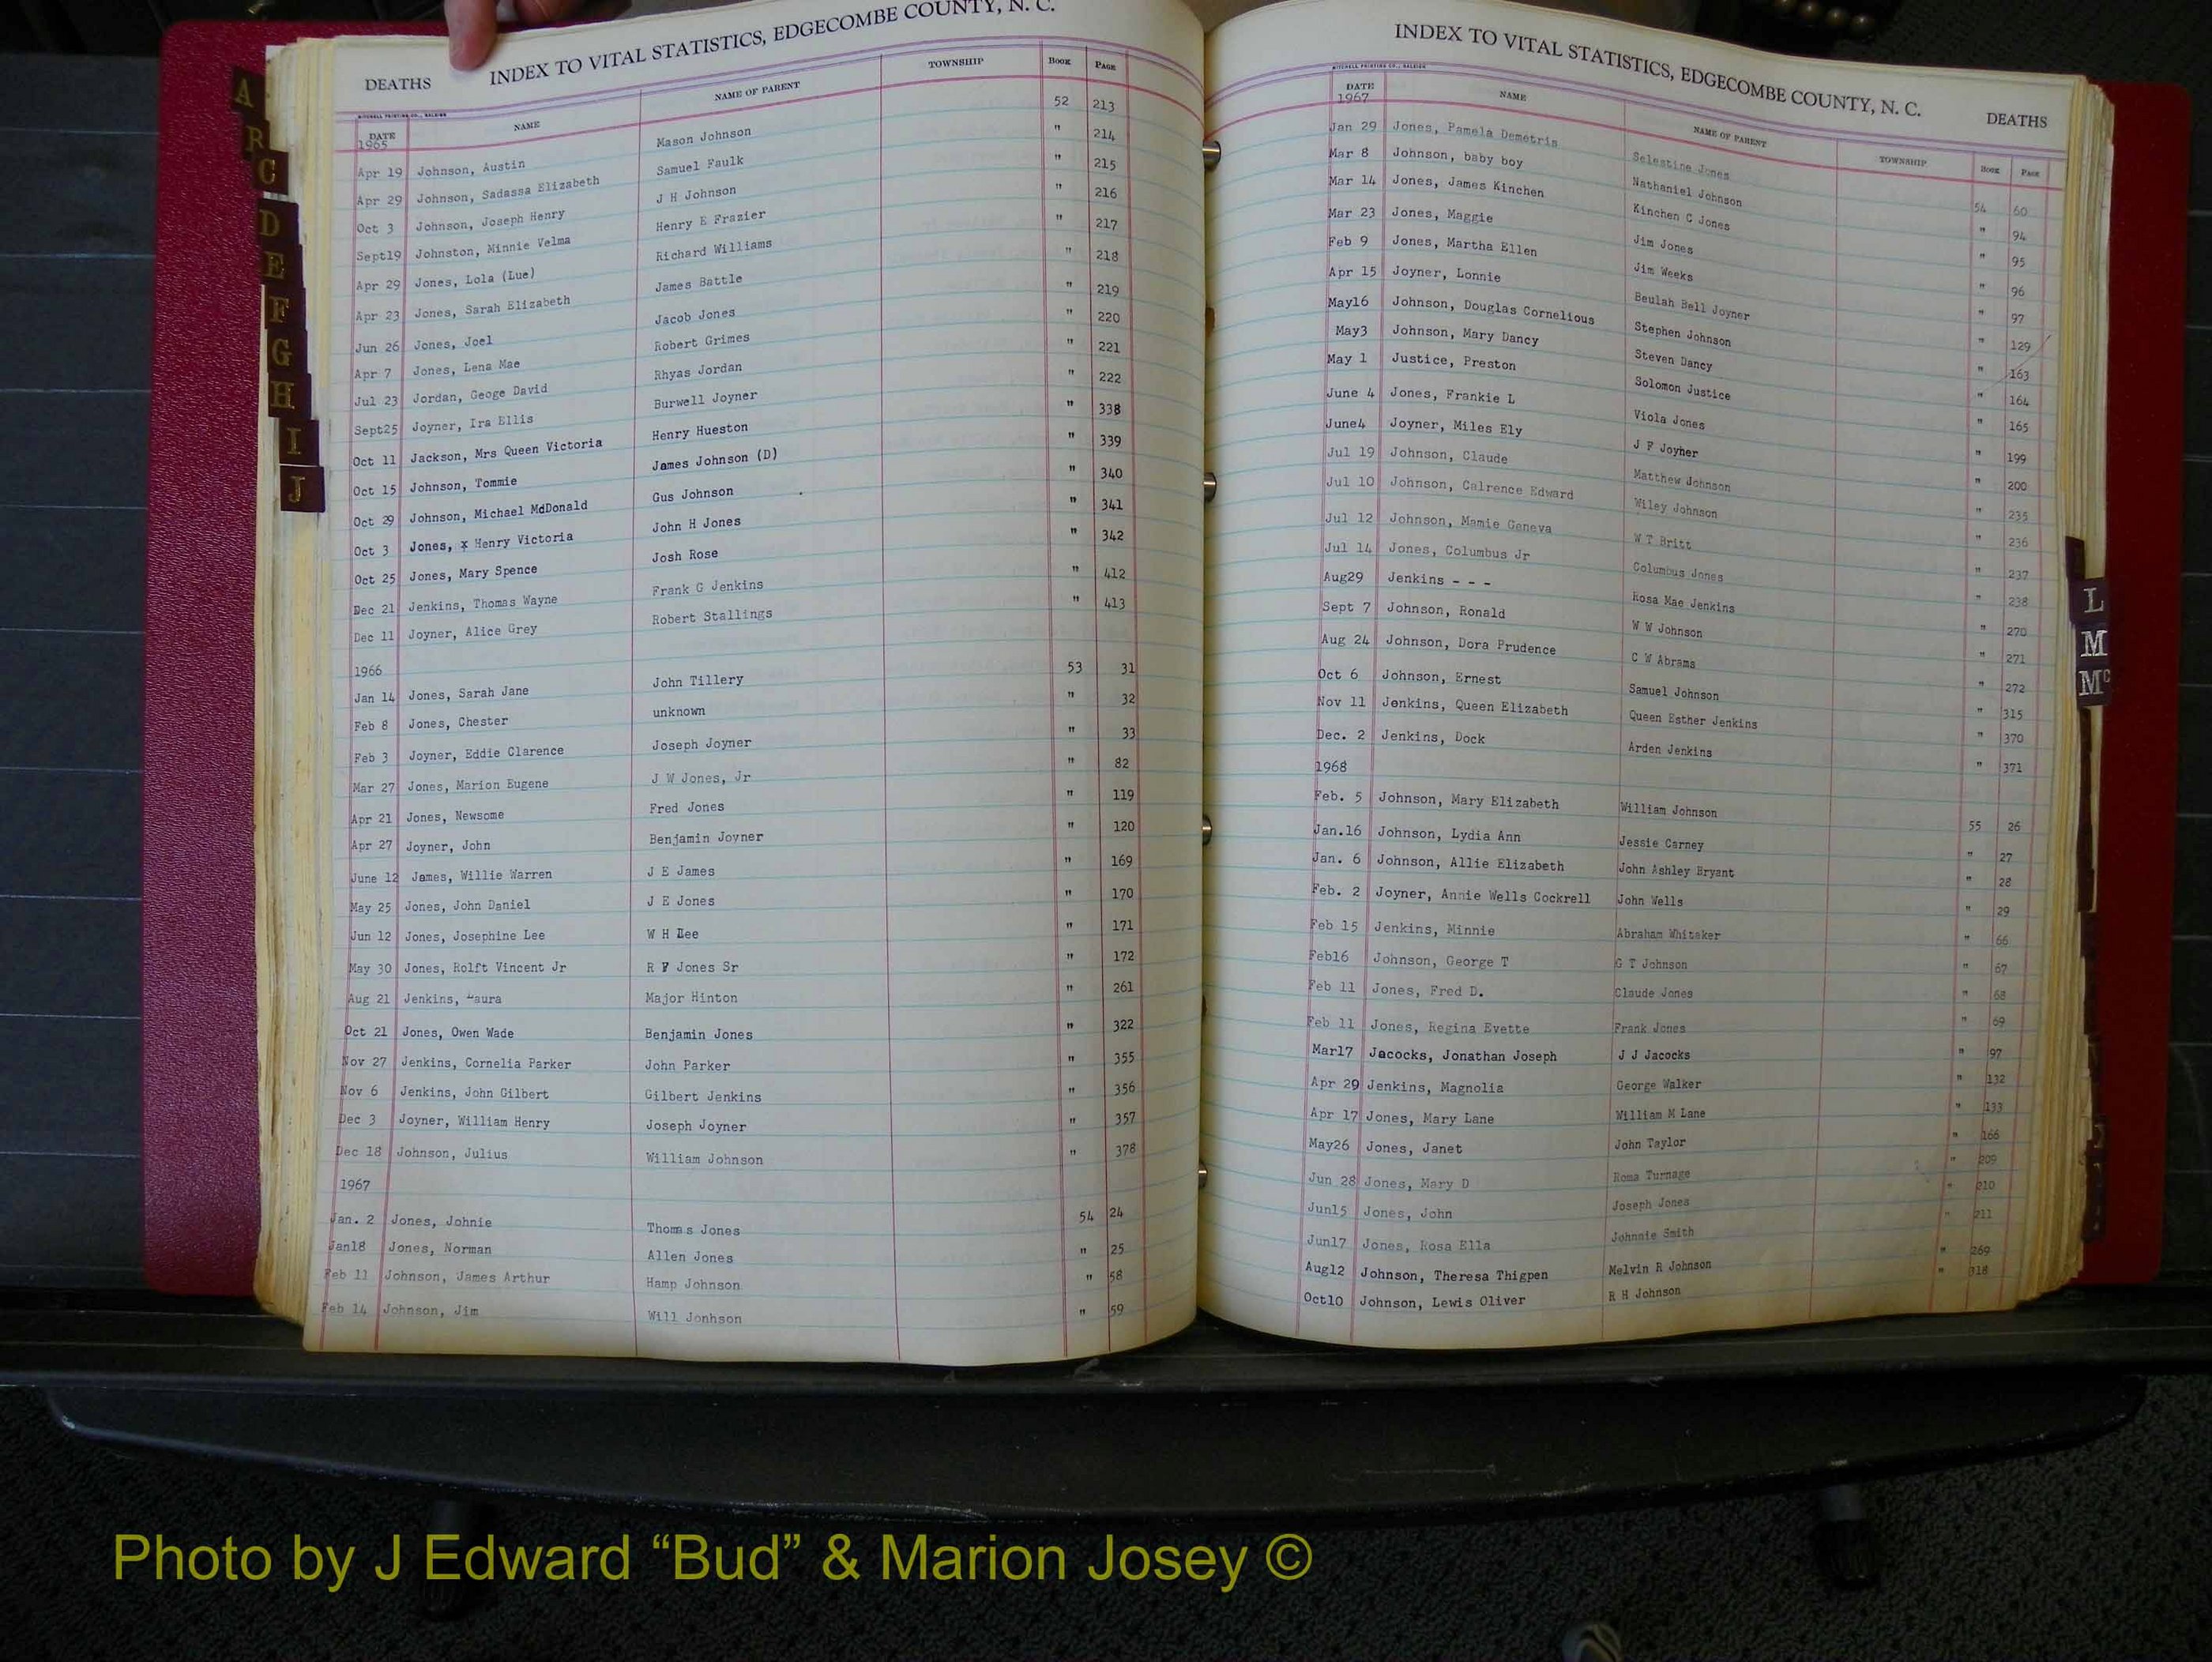 INDEX TO VITAL STATISTICS, EDGECOMBE COUNTY, N. C.
DEATHS
MITCHELL PRINTING CO., RALEIGH
DATE NAME NAME OF PARENT TOWNSHIP BOOK PAGE
1965
Apr 19 Johnson, Austin Mason Johnson 52 213
Apr 29 Johnson, Sadassa Elizabeth Samuel Faulk " 214
Oct 3 Johnson, Joseph Henry J H Johnson " 215
Sept19 Johnston, Minnie Velma Henry E Frazier " 216
Apr 29 Jones, Lola (Lue) Richard Williams " 217
Apr 23 Jones, Sarah Elizabeth James Battle " 218
Jun 26 Jones, Joel Jacob Jones " 219
Apr 7 Jones, Lena Mae Robert Grimes " 220
Jul 23 Jordan, Geoge David Rhyas Jordan " 221
Sept25 Joyner, Ira Ellis Burwell Joyner " 222
Oct 11 Jackson, Mrs Queen Victoria Henry Hueston " 338
Oct 15 Johnson, Tommie James Johnson (D) " 339
Oct 29 Johnson, Michael MdDonald Gus Johnson " 340
Oct 3 Jones, x Henry Victoria John H Jones " 341
Oct 25 Jones, Mary Spence Josh Rose " 342
Dec 21 Jenkins, Thomas Wayne Frank G Jenkins " 412
Dec 11 Joyner, Alice Grey Robert Stallings " 413
1966
Jan 14 Jones, Sarah Jane John Tillery 53 31
Feb 8 Jones, Chester unknown " 32
Feb 3 Joyner, Eddie Clarence Joseph Joyner " 33
Mar 27 Jones, Marion Eugene J W Jones, Jr " 82
Apr 21 Jones, Newsome Fred Jones " 119
Apr 27 Joyner, John Benjamin Joyner " 120
June 12 James, Willie Warren J E James " 169
May 25 Jones, John Daniel J E Jones " 170
Jun 12 Jones, Josephine Lee W H Lee " 171
May 30 Jones, Rolft Vincent Jr R V Jones Sr " 172
Aug 21 Jenkins, Laura Major Hinton " 261
Oct 21 Jones, Owen Wade Benjamin Jones " 322
Nov 27 Jenkins, Cornelia Parker John Parker " 355
Nov 6 Jenkins, John Gilbert Gilbert Jenkins " 356
Dec 3 Joyner, William Henry Joseph Joyner " 357
Dec 18 Johnson, Julius William Johnson " 378
1967
Jan. 2 Jones, Johnie Thomas Jones 54 24
Jan18 Jones, Norman Allen Jones " 25
Feb 11 Johnson, James Arthur Hamp Johnson " 58
Feb 14 Johnson, Jim Will Jonhson " 59
INDEX TO VITAL STATISTICS, EDGECOMBE COUNTY, N. C.
DEATHS
MITCHELL PRINTING CO., RALEIGH
DATE NAME NAME OF PARENT TOWNSHIP BOOK PAGE
1967
Jan 29 Jones, Pamela Demetris Selestine Jones 54 60
Mar 8 Johnson, baby boy Nathaniel Johnson " 94
Mar 14 Jones, James Kinchen Kinchen C Jones " 95
Mar 23 Jones, Maggie Jim Jones " 96
Feb 9 Jones, Martha Ellen Jim Weeks " 97
Apr 15 Joyner, Lonnie Beulah Bell Joyner " 129
May16 Johnson, Douglas Cornelious Stephen Johnson " 163
May3 Johnson, Mary Dancy Steven Dancy " 164
May 1 Justice, Preston Solomon Justice " 165
June 4 Jones, Frankie L Viola Jones " 199
June4 Joyner, Miles Ely J F Joyner " 200
Jul 19 Johnson, Claude Matthew Johnson " 235
Jul 10 Johnson, Calrence Edward Wiley Johnson " 236
Jul 12 Johnson, Mamie Geneva W T Britt " 237
Jul 14 Jones, Columbus Jr Columbus Jones " 238
Aug29 Jenkins - - - Rosa Mae Jenkins " 270
Sept 7 Johnson, Ronald W W Johnson " 271
Aug 24 Johnson, Dora Prudence C W Abrams " 272
Oct 6 Johnson, Ernest Samuel Johnson " 315
Nov 11 Jenkins, Queen Elizabeth Queen Esther Jenkins " 370
Dec. 2 Jenkins, Dock Arden Jenkins " 371
1968
Feb. 5 Johnson, Mary Elizabeth William Johnson 55 26
Jan.16 Johnson, Lydia Ann Jessie Carney " 27
Jan. 6 Johnson, Allie Elizabeth John Ashley Bryant " 28
Feb. 2 Joyner, Annie Wells Cockrell John Wells " 29
Feb 15 Jenkins, Minnie Abraham Whitaker " 66
Feb16 Johnson, George T G T Johnson " 67
Feb 11 Jones, Fred D. Claude Jones " 68
Feb 11 Jones, Regina Evette Frank Jones " 69
Mar17 Jacocks, Jonathan Joseph J J Jacocks " 97
Apr 29 Jenkins, Magnolia George Walker " 132
Apr 17 Jones, Mary Lane William M Lane " 133
May26 Jones, Janet John Taylor " 166
Jun 28 Jones, Mary D Roma Turnage " 209
Jun15 Jones, John Joseph Jones " 210
Jun17 Jones, Rosa Ella Johnnie Smith " 211
Aug12 Johnson, Theresa Thigpen Melvin R Johnson " 269
Oct10 Johnson, Lewis Oliver R H Johnson " 318
A
C
D
E
F
G
H
I
J
L
M
Mc
Photo by J Edward “Bud” & Marion Josey ©